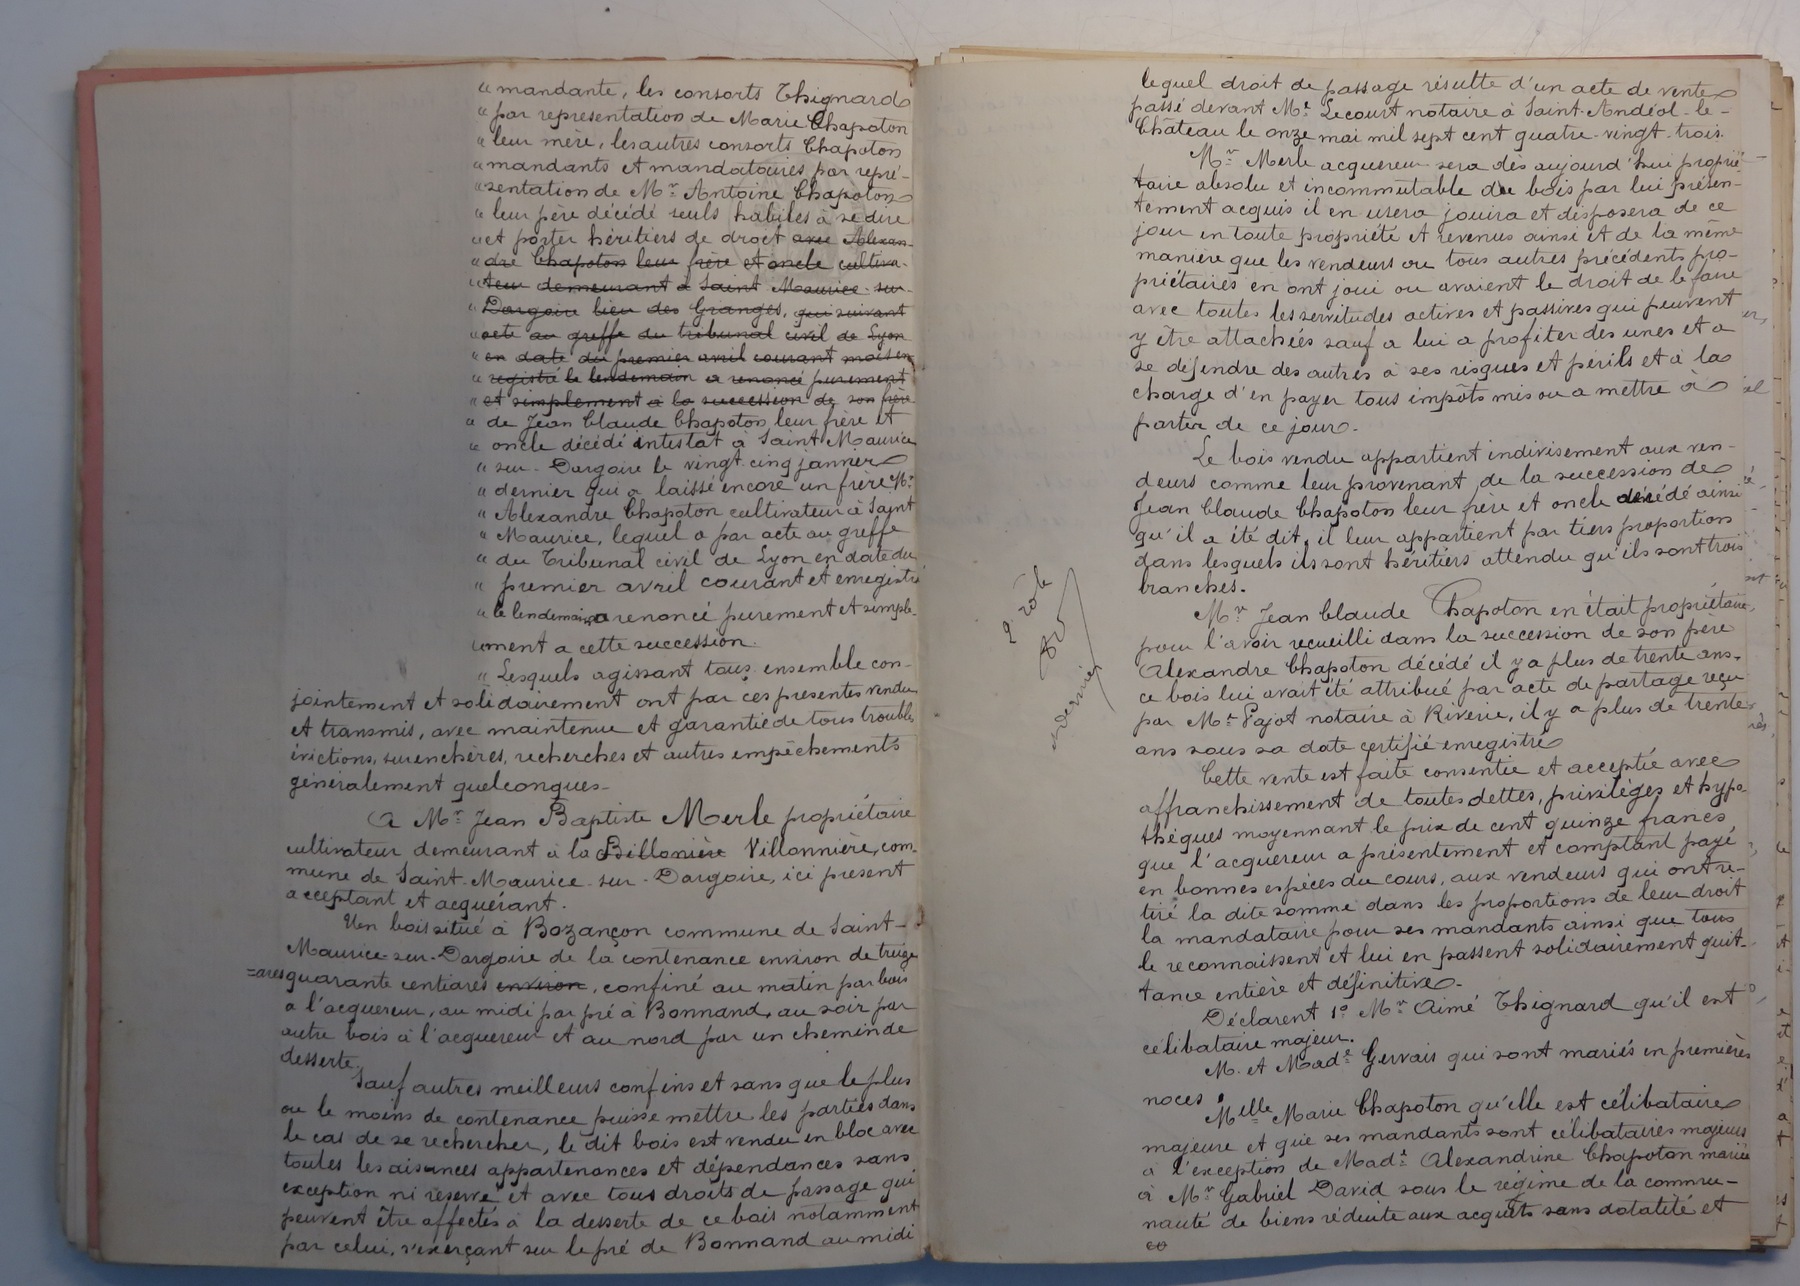 " mandante, les consorts Thignard
" par representation de Marie Chapoton
" leur mère, les autres consorts Chapoton
" mandants et mandataires par repré-
" sentation de Mr Antoine Chapoton
" leur père décédé seuls habiles à se dire
" et porter héritiers de droit avec Alexan-
" dre Chapoton leur frère et oncle cultiva-
" teur demeurant à Saint Maurice sur
" Dargoire lieu des Granges, qui suivant
" acte au greffe du tribunal civil de Lyon
" en date du premier avril courant mois en
" registré le lendemain a renoncé purement
" et simplement à la succession de son frère
" de Jean Claude Chapoton leur frère et
" oncle décédé intestat à Saint Maurice
" sur-Dargoire le vingt cinq janvier
" dernier qui a laissé encore un frère Mr
" Alexandre Chapoton cultivateur à Saint
" Maurice, lequel a par acte au greffe
" du Tribunal civil de Lyon en date du
" premier avril courant et enregistré
" le lendemain a renoncé purement et simple-
ument a cette succession.
" Lesquels agissant tous ensemble con-
jointement et solidairement ont par ces presentes vendu
et transmis, avec maintenue et garantie de tous troubles
évictions, surenchères, recherches et autres empêchements
généralement quelconques-
A Mr Jean Baptiste Merle propriétaire
cultivateur demeurant à la Billonière Villonnière, com-
mune de Saint-Maurice-sur-Dargoire, ici présent
acceptant et acquérant.
Un bois situé à Bozançon commune de Saint-
Maurice-sur-Dargoire de la contenance environ de treize
=ares quarante centiares environ, confiné au matin par bois
a l'acquereur, au midi par pré à Bonnand, au soir par
autre bois à l'acquereur et au nord par un chemin de
desserte.
Sauf autres meilleurs confins et sans que le plus
ou le moins de contenance puisse mettre les parties dans
le cas de se rechercher, le dit bois est vendu en bloc avec
toutes les aisances appartenances et dépendances sans
exception ni réserve et avec tous droits de passage qui
peuvent être affectés à la desserte de ce bois notamment
par celui, s'exerçant sur le pré de Bonnand au midi
lequel droit de passage résulte d'un acte de vente
passé devant Me Lecourt notaire à Saint-Andéol-le-
Château le onze mai mil sept cent quatre-vingt-trois.
Mr Merle acquereur sera dès aujourd'hui proprié-
taire absolu et incommutable du bois par lui présen-
tement acquis il en usera jouira et disposera de ce
jour en toute propriété et revenus ainsi et de la même
manière que les vendeurs ou tous autres précédents pro-
priétaires en ont joui ou avaient le droit de le faire
avec toutes les servitudes actives et passives qui peuvent
y être attachées sauf a lui a profiter des unes et a
se défendre des autres à ses risques et périls et à la
charge d'en payer tous impôts mis ou a mettre à
partir de ce jour.
Le bois vendu appartient indivisement aux ven-
deurs comme leur provenant de la succession de
Jean Claude Chapoton leur frère et oncle décédé ainsi
qu'il a été dit, il leur appartient par tiers proportion
dans lesquels ils sont héritiers attendu qu'ils sont trois
branches.
Mr Jean Claude Chapoton en était propriétaire,
pour l'avoir recueilli dans la succession de son père
Alexandre Chapoton décédé il y a plus de trente ans.
ce bois lui avait été attribué par acte de partage reçu
par Me Pajot notaire à Riverie, il y a plus de trente
ans sous sa date certifié enregistré
Cette vente est faite consentie et acceptée avec
affranchissement de toutes dettes, privilèges et hypo-
thèques moyennant le prix de cent quinze francs
que l'acquereur a présentement et comptant payé
en bonnes espèces du cours, aux vendeurs qui ont re-
tiré la dite somme dans les proportions de leur droit
la mandataire pour ses mandants ainsi que tous
le reconnaissent et lui en passent solidairement quit-
tance entière et définitive.
Déclarent 1° Mr Aimé Thignard qu'il est
célibataire majeur.
M. et Made Gervais qui sont mariés en premières
noces.
Melle Marie Chapoton qu'elle est célibataire
majeure et que ses mandants sont célibataires majeurs
à l'exception de Made Alexandrine Chapoton mariée
à Mr Gabriel David sous le régime de la commu-
nauté de biens réduite aux acquêts sans dotalité et